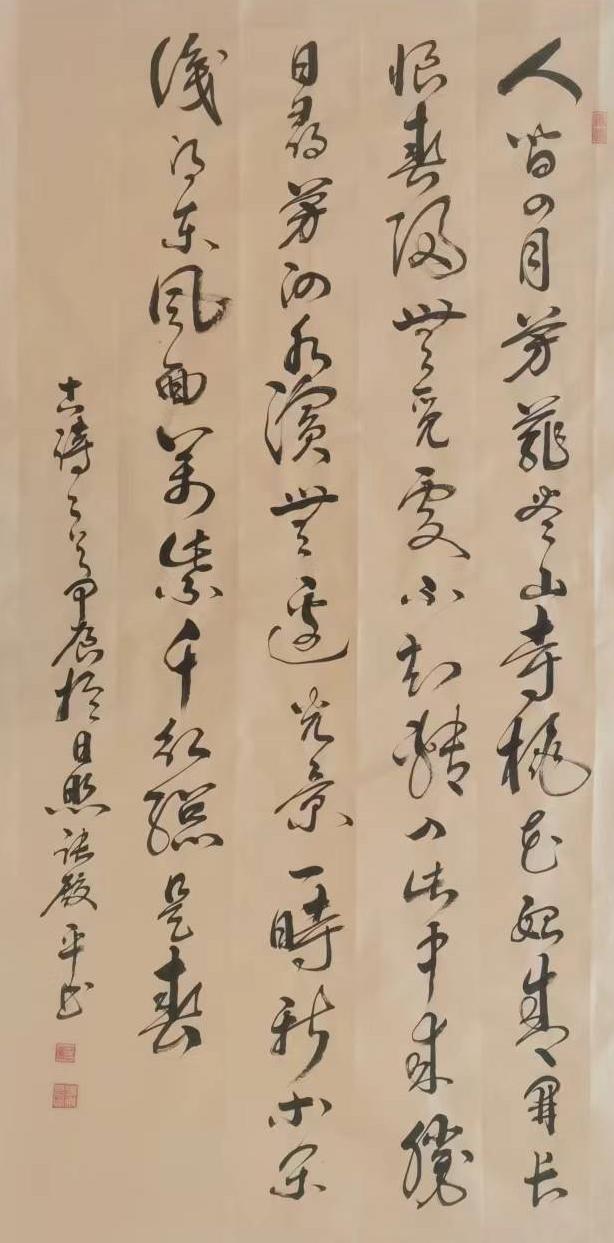 人間四月芳菲盡山寺桃花始盛開長
恨春歸無覓處不知轉入此中來勝
日尋芳泗水濱無邊光景一時新等閑
識得東風面萬紫千紅總是春
古詩二首甲辰於日照張殿平書